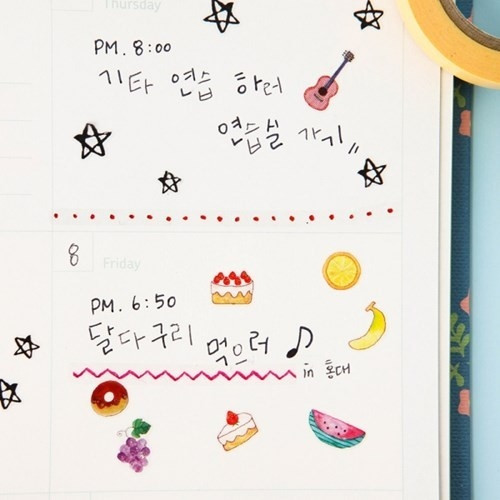 Thursday
PM. 8:00
기타 연습 하러
연습실 가기〃
8
Friday
PM. 6:50
달다구리 먹으러
in 홍대